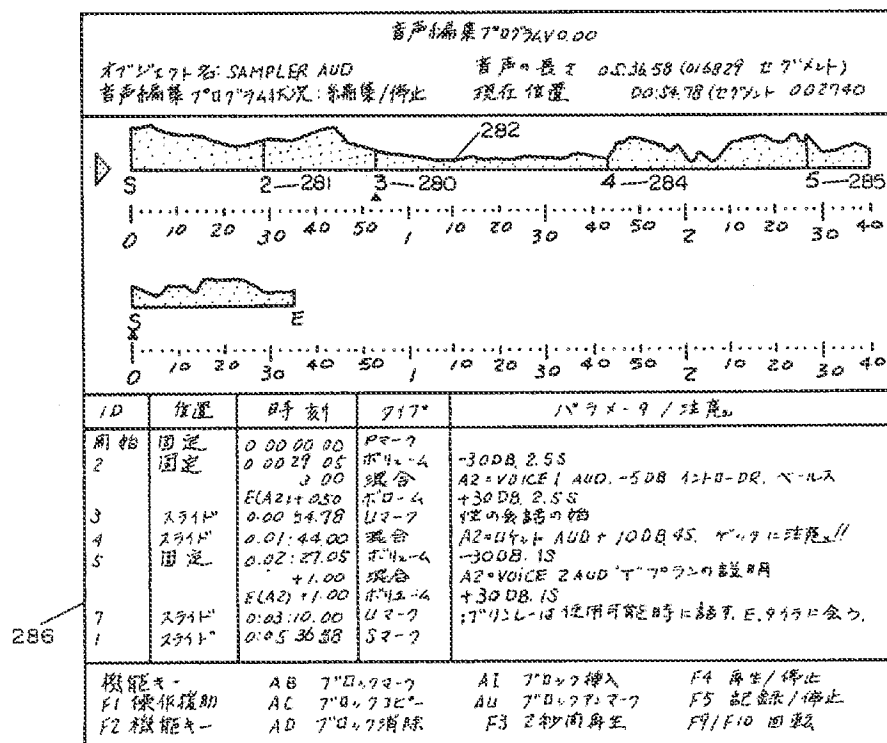 音声編集プログラムV0.00
オブジェクト名: SAMPLER AUD 音声の長さ 05:36.58 (016829 セグメント)
音声編集プログラム状況: 編集/停止 現在位置 00:54.78 (セグメント 002740
282
S 2 281 3 280 4 284 5 285
0 10 20 30 40 50 1 10 20 30 40 50 2 10 20 30 40
S E
0 10 20 30 40 50 1 10 20 30 40 50 2 10 20 30 40
ID 位置 時刻 タイプ パラメータ/注意
開始 固定 0 00 00 00 Pマーク
2 固定 0 00 29 05 ボリューム -30DB, 2.5S
3 00 混合 A2=VOICE 1 AUD, -5DB イントロ-DR. ベールス
E(A2)+0.50 ボリューム +30DB, 2.5S
3 スライド 0:00 54.78 Uマーク の会話の始
4 スライド 0.01:44.00 混合 A2=ロケット AUD + 10DB, 4S. に注意!!
5 固定 0.02:27.05 ボリューム -30DB. 1S
+1.00 混合 A2=VOICE 2 AUD プランの説明
E(A2)+1.00 ボリューム +30DB. 1S
286
7 スライド 0:03:10.00 Uマーク は使用可能時に話す. E.タイラに会う.
1 スライド 0:05 36 58 Sマーク
機能キー AB ブロックマーク AI ブロック挿入 F4 再生/停止
F1 操作援助 AC ブロックコピー AU ブロックアンマーク F5 記録/停止
F2 機能キー AD ブロック消除 F3 2秒間再生 F9/F10 回転